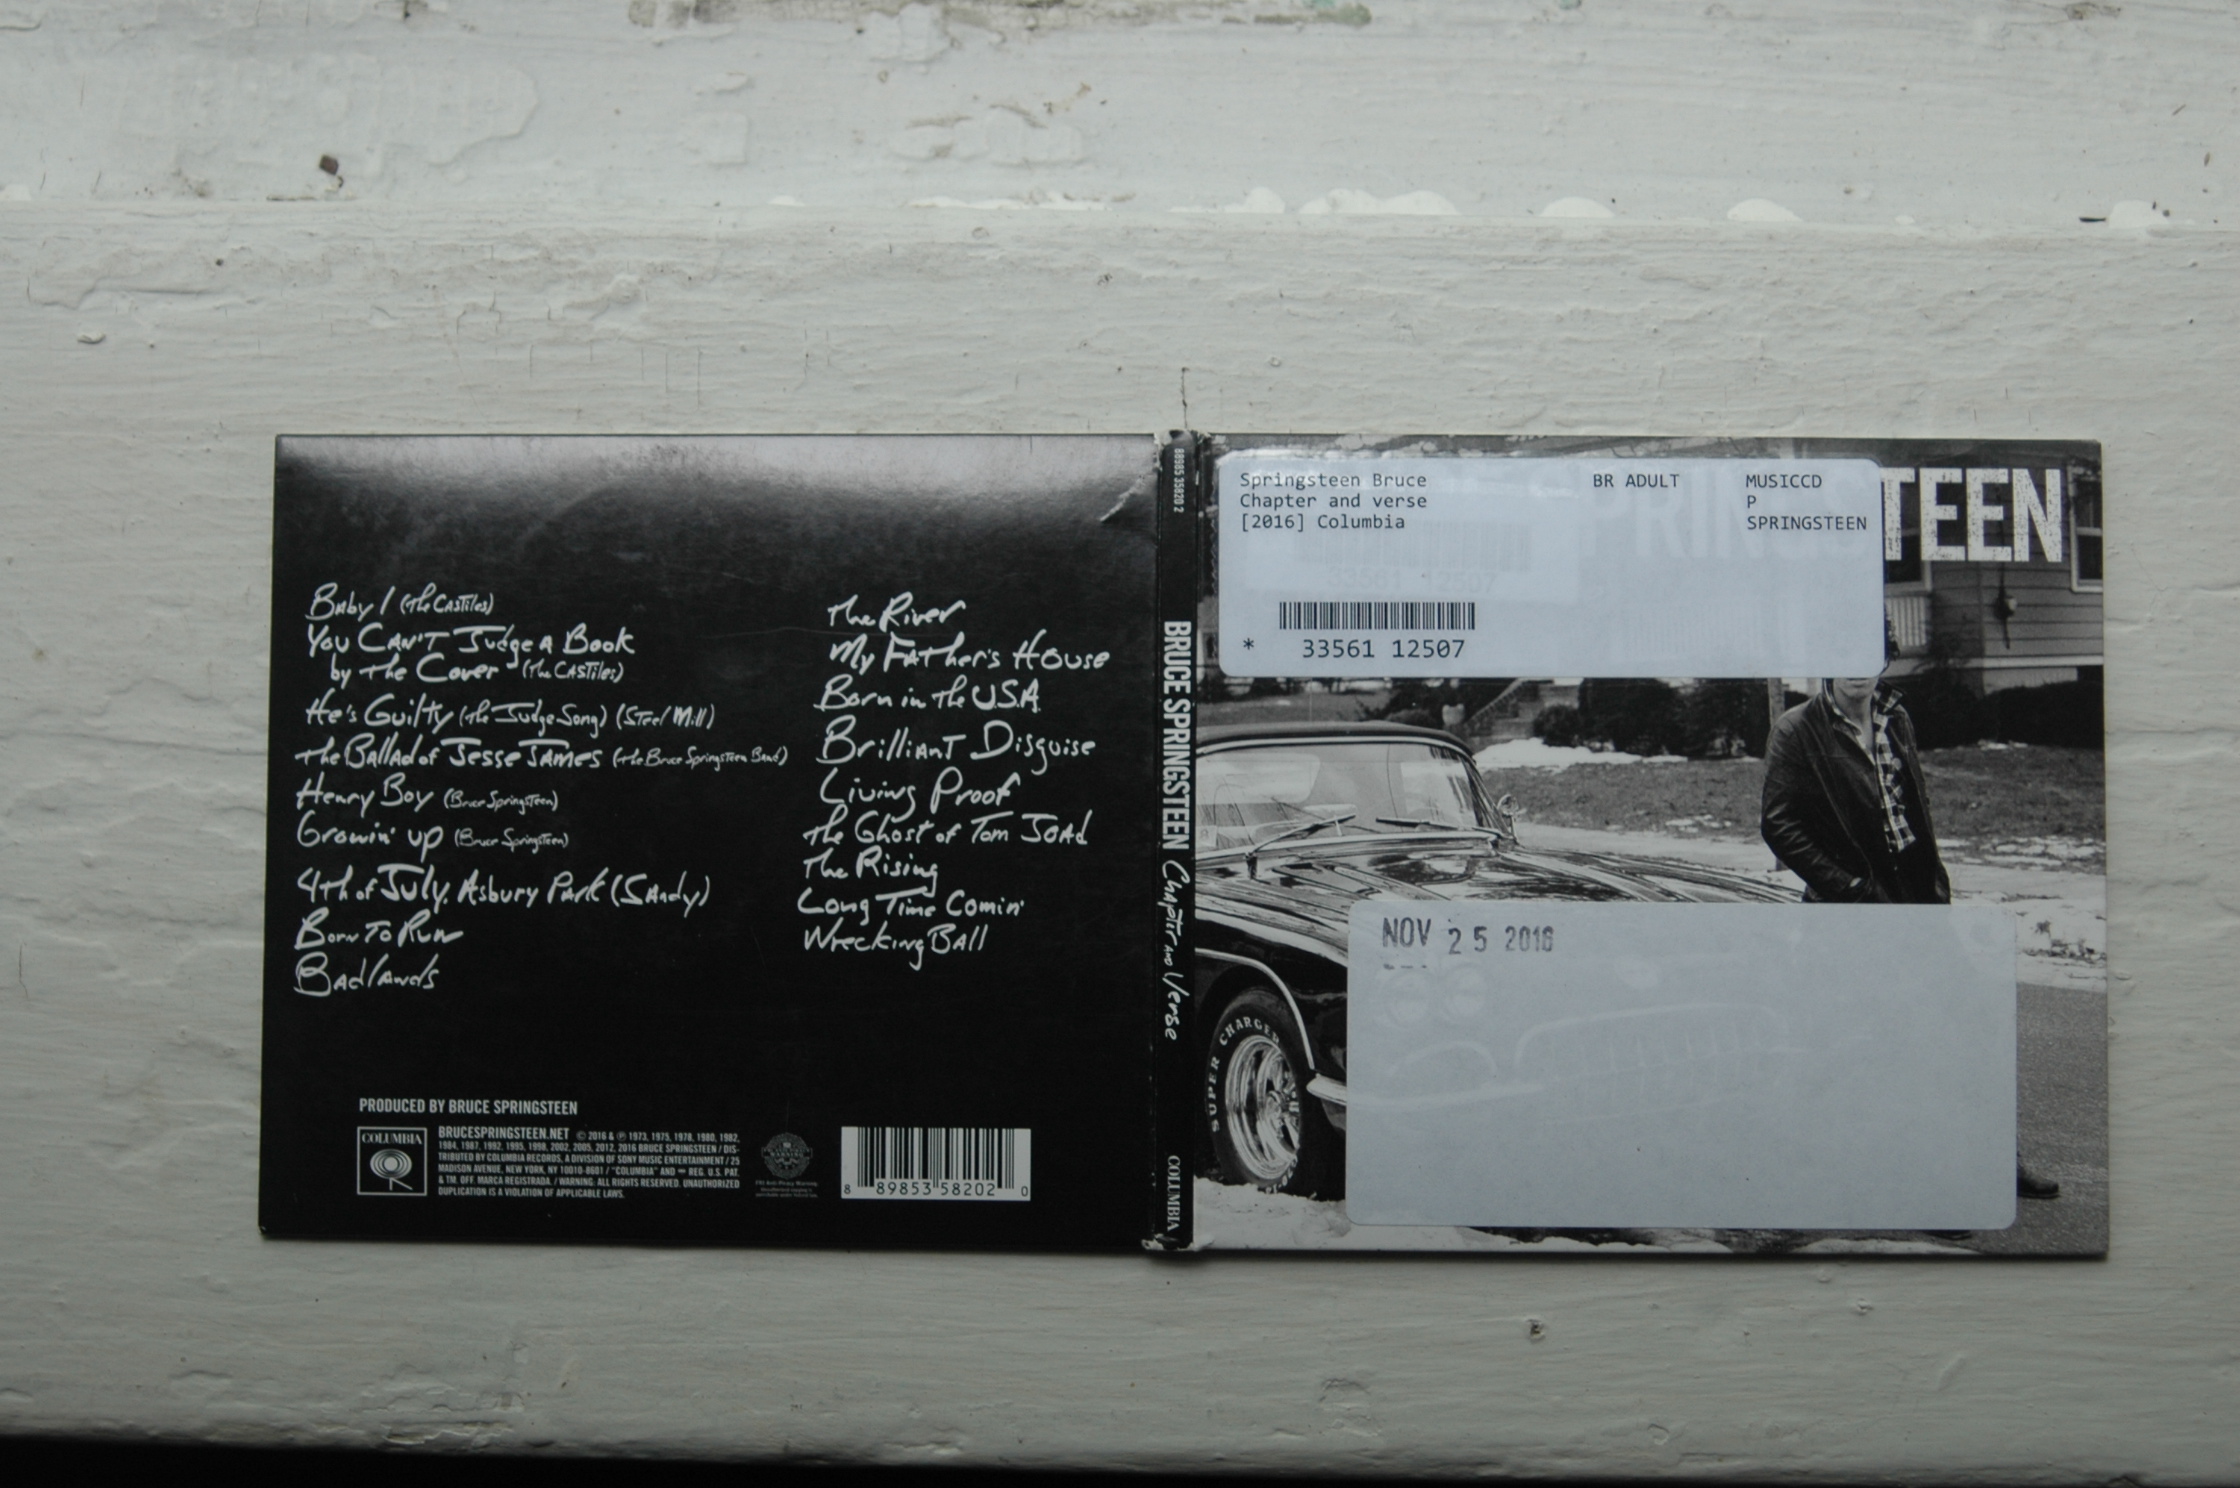 Baby I (The Castiles)
You Can't Judge A Book
by The Cover (The Castiles)
He's Guilty (The Judge Song) (Steel Mill)
The Ballad of Jesse James (The Bruce Springsteen Band)
Henry Boy (Bruce Springsteen)
Growin' Up (Bruce Springsteen)
4th of July, Asbury Park (Sandy)
Born To Run
Badlands
The River
My Father's House
Born in the U.S.A.
Brilliant Disguise
Living Proof
The Ghost of Tom Joad
The Rising
Long Time Comin'
Wrecking Ball
PRODUCED BY BRUCE SPRINGSTEEN
COLUMBIA
BRUCESPRINGSTEEN.NET © 2016 & ℗ 1973, 1975, 1978, 1980, 1982,
1984, 1987, 1992, 1995, 1998, 2002, 2005, 2012, 2016 BRUCE SPRINGSTEEN / DIS-
TRIBUTED BY COLUMBIA RECORDS, A DIVISION OF SONY MUSIC ENTERTAINMENT / 25
MADISON AVENUE, NEW YORK, NY 10010-8601 / "COLUMBIA" AND REG. U.S. PAT.
& TM. OFF. MARCA REGISTRADA. / WARNING: ALL RIGHTS RESERVED. UNAUTHORIZED
DUPLICATION IS A VIOLATION OF APPLICABLE LAWS.
FBI Anti-Piracy Warning
8 89853 58202 0
88985 35820 2
BRUCE SPRINGSTEEN Chapter and Verse
COLUMBIA
Springsteen Bruce BR ADULT MUSICCD
Chapter and verse P
[2016] Columbia SPRINGSTEEN
PRINGSTEEN
33561 12507
* 33561 12507
NOV 25 2016
SUPER CHARGER